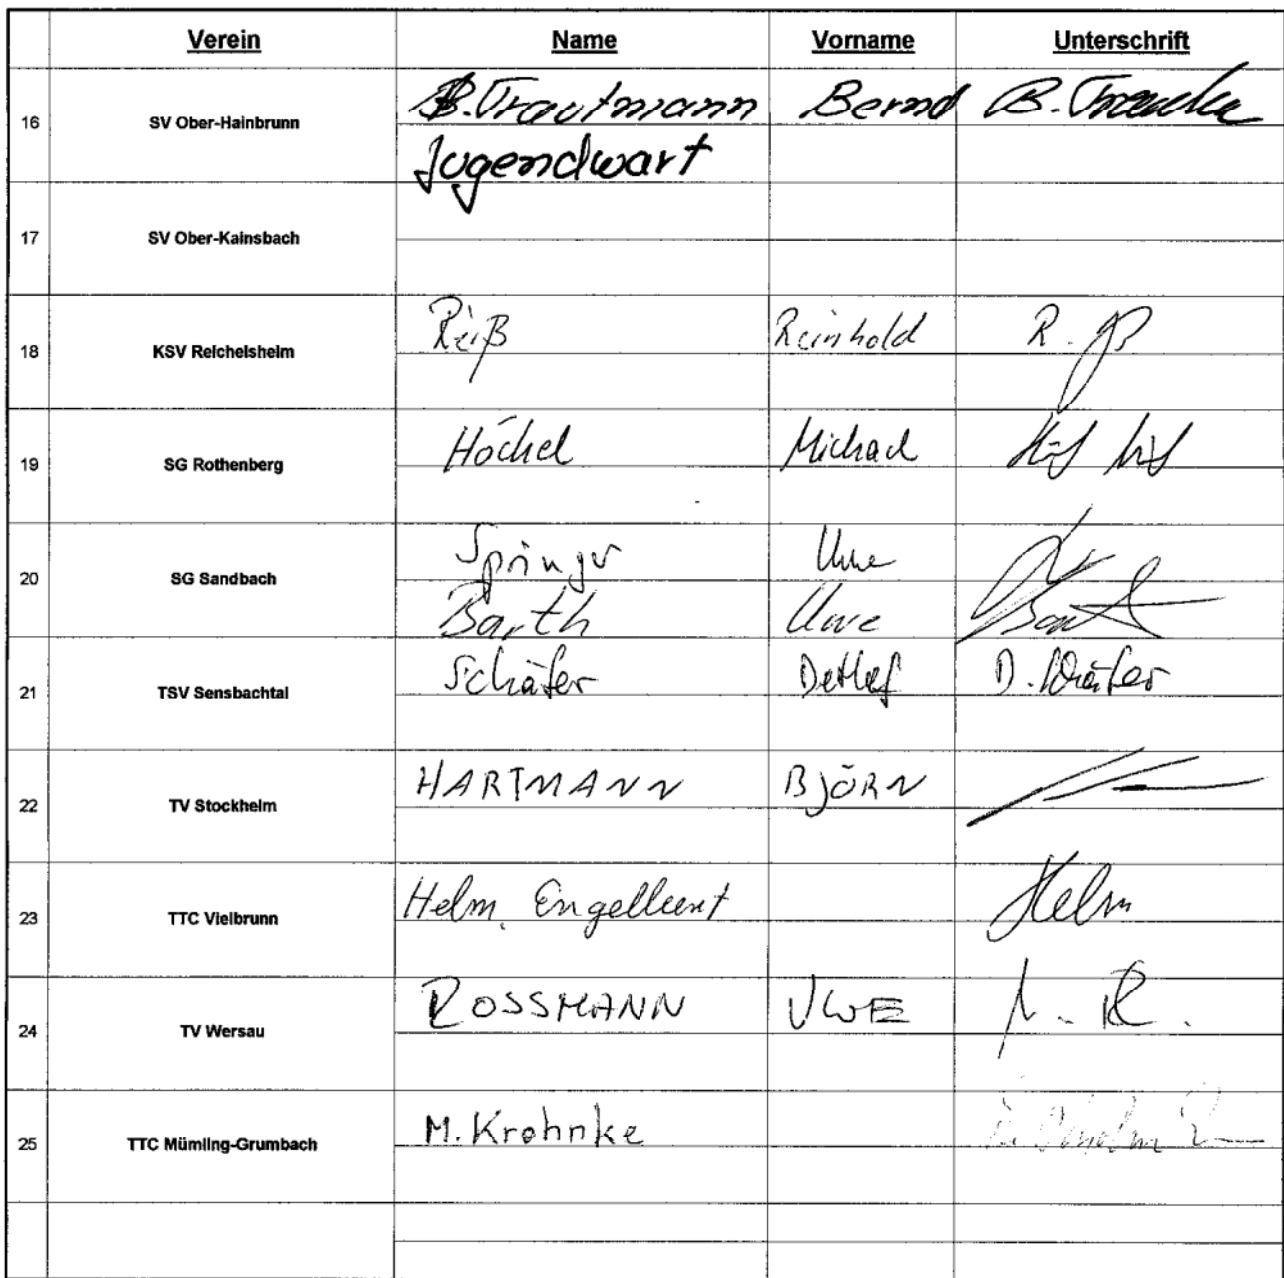 Verein Name Vorname Unterschrift
16 SV Ober-Hainbrunn B. Trautmann Bernd B.
Jugendwart
17 SV Ober-Kainsbach
18 KSV Reichelsheim Reiß Reinhold R.
19 SG Rothenberg Höchel Michael
20 SG Sandbach Springer Uwe
Barth Uwe
21 TSV Sensbachtal Schäfer Detlef D. Schäfer
22 TV Stockheim HARTMANN BJÖRN
23 TTC Vielbrunn Helm, Engelbert Helm
24 TV Wersau ROSSMANN UWE
25 TTC Mümling-Grumbach M. Krohnke